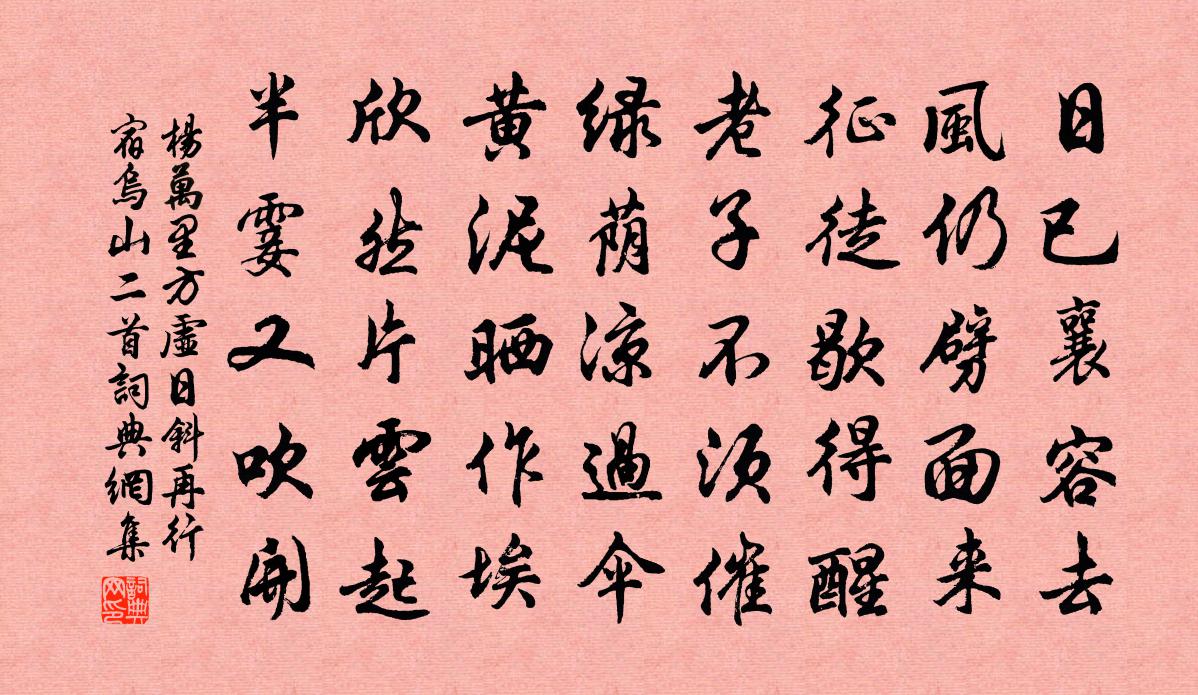 日已襄容去
風仍劈面来
征徒歇得醒
老子不须催
绿荫凉過伞
黄泥晒作埃
欣然片雲起
半霎又吹開
楊萬里方虛日斜再行
宿烏山二首詞典網集
詞典
网印